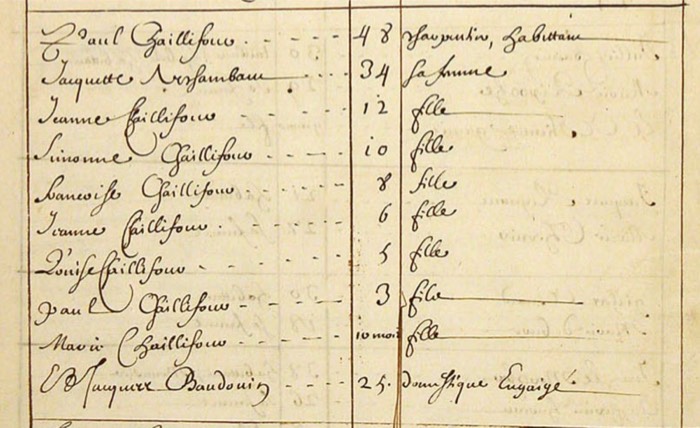 Paul Chaillifour 48 charpentier, habittant
Jacquette Archambaut 34 sa femme
Jeanne Chaillifour 12 fille
Simonne Chaillifour 10 fille
francoise Chaillifour 8 fille
Jeanne Chaillifour 6 fille
Louise Chaillifour 5 fille
paul Chaillifour 3 filz
Marie Chaillifour 10 mois fille
Jacques Baudouin 25. domestique Engagé.